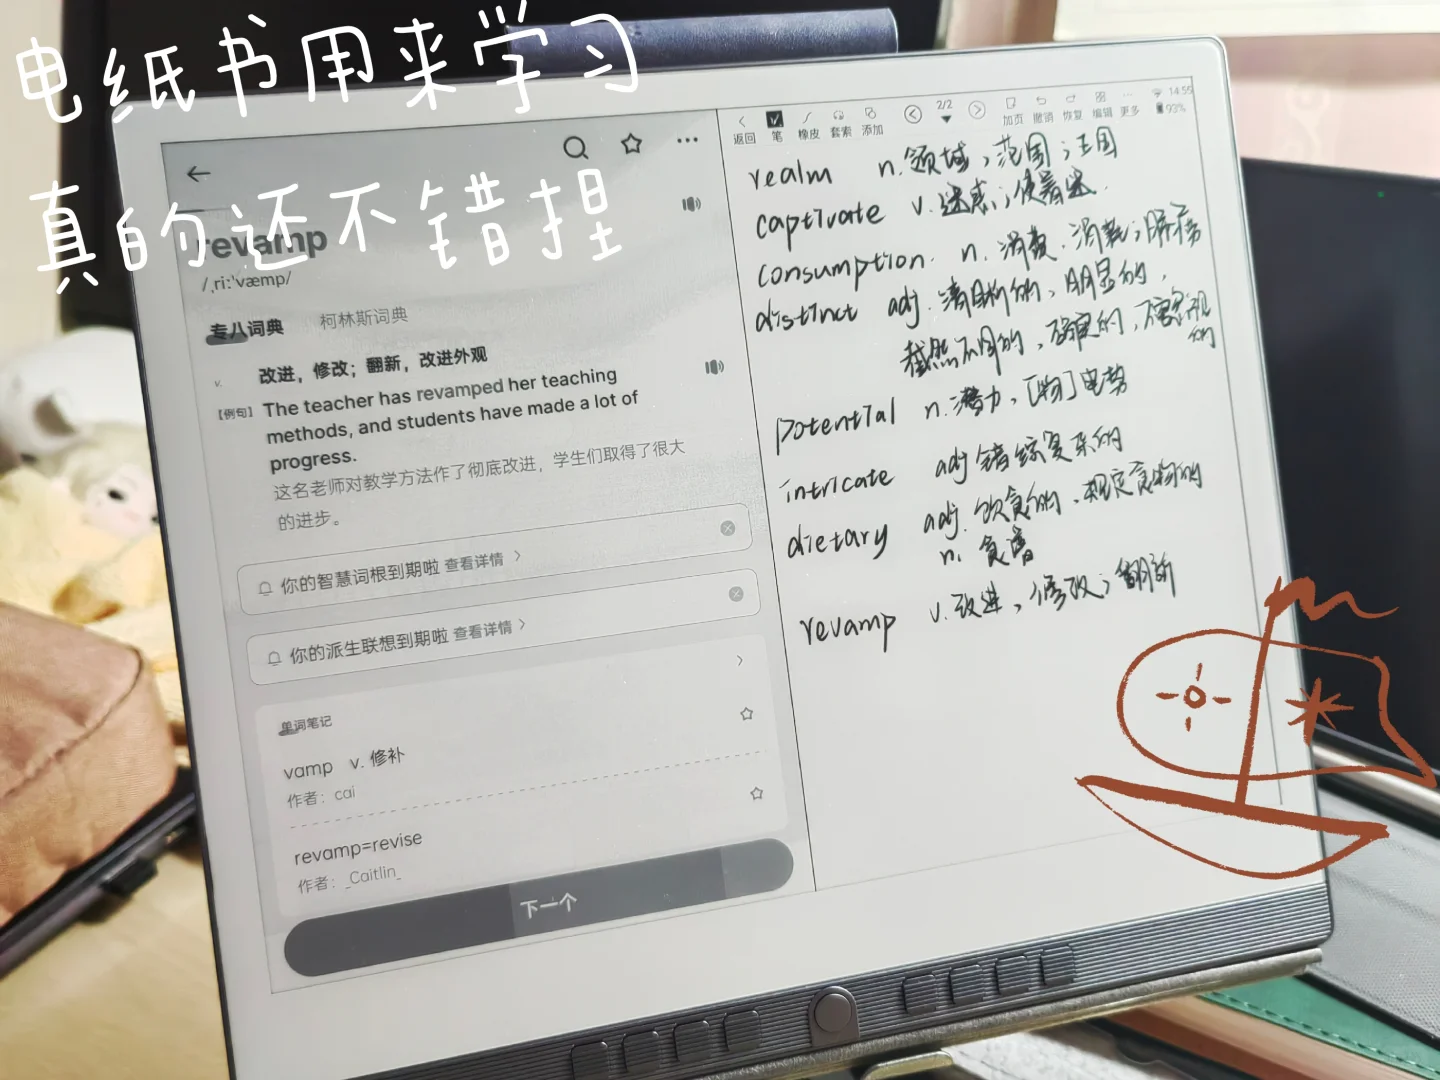 电纸书用来学习
真的还不错捏
revamp
/ˌriːˈvæmp/
专八词典 柯林斯词典
v. 改进，修改；翻新，改进外观
【例句】The teacher has revamped her teaching
methods, and students have made a lot of
progress.
这名老师对教学方法作了彻底改进，学生们取得了很大
的进步。
你的智慧词根到期啦 查看详情 >
你的派生联想到期啦 查看详情 >
单词笔记
vamp v. 修补
作者：cai
revamp=revise
作者：_Caitlin_
下一个
14:55
2/2
93%
返回 笔 橡皮 套索 添加 加页 撤消 恢复 编辑 更多
realm n. 领域；范围；王国
captivate v. 迷惑；使着迷
consumption n. 消费、消耗；肺痨
distinct adj. 清晰的、明显的，
截然不同的、确定的、不容忽视
的
potential n. 潜力，[物]电势
intricate adj 错综复杂的
dietary adj. 饮食的、规定食物的
n. 食谱
revamp v. 改进，修改；翻新